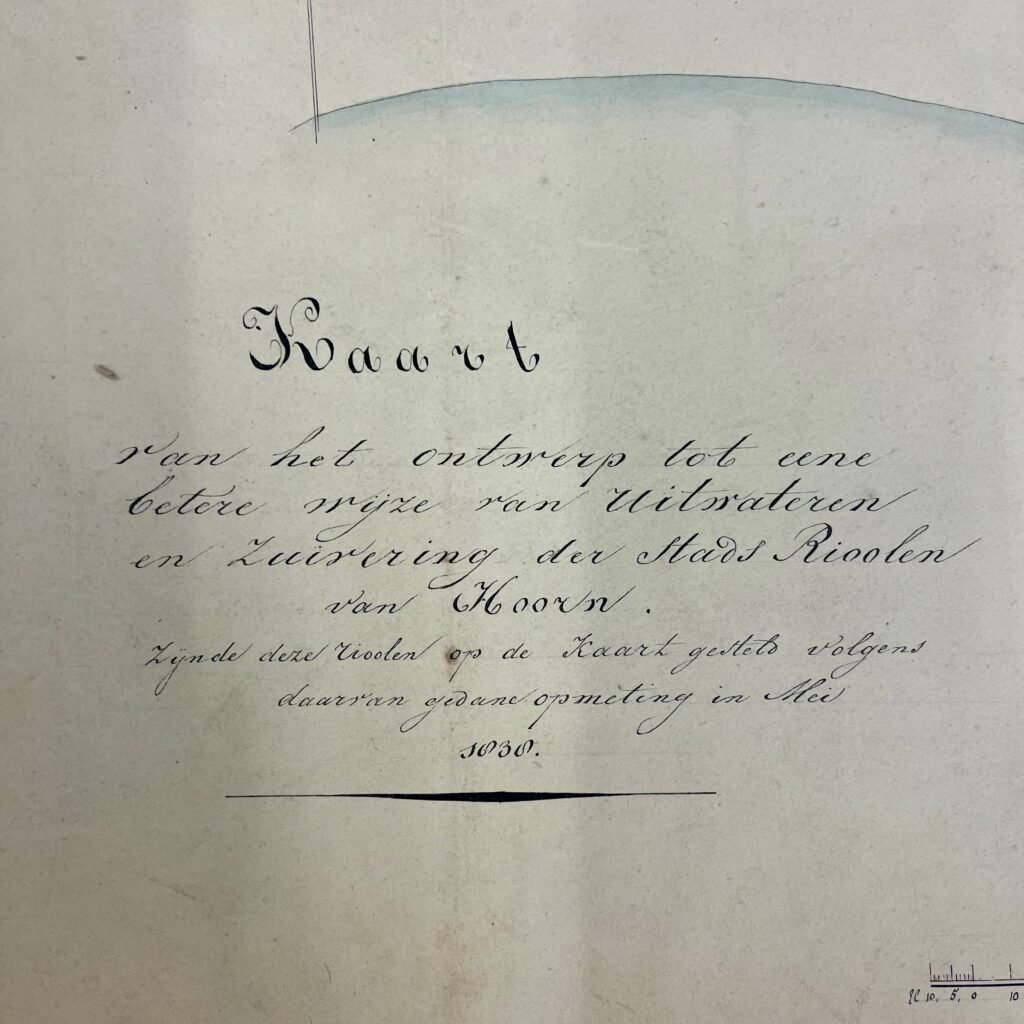 Kaart
van het ontwerp tot eene
betere wijze van Uitwateren
en Zuivering der Stads Rioolen
van Hoorn.
Zijnde deze rioolen op de Kaart gesteld volgens
daarvan gedane opmeting in Mei
1838.
El 10, 5, 0 10